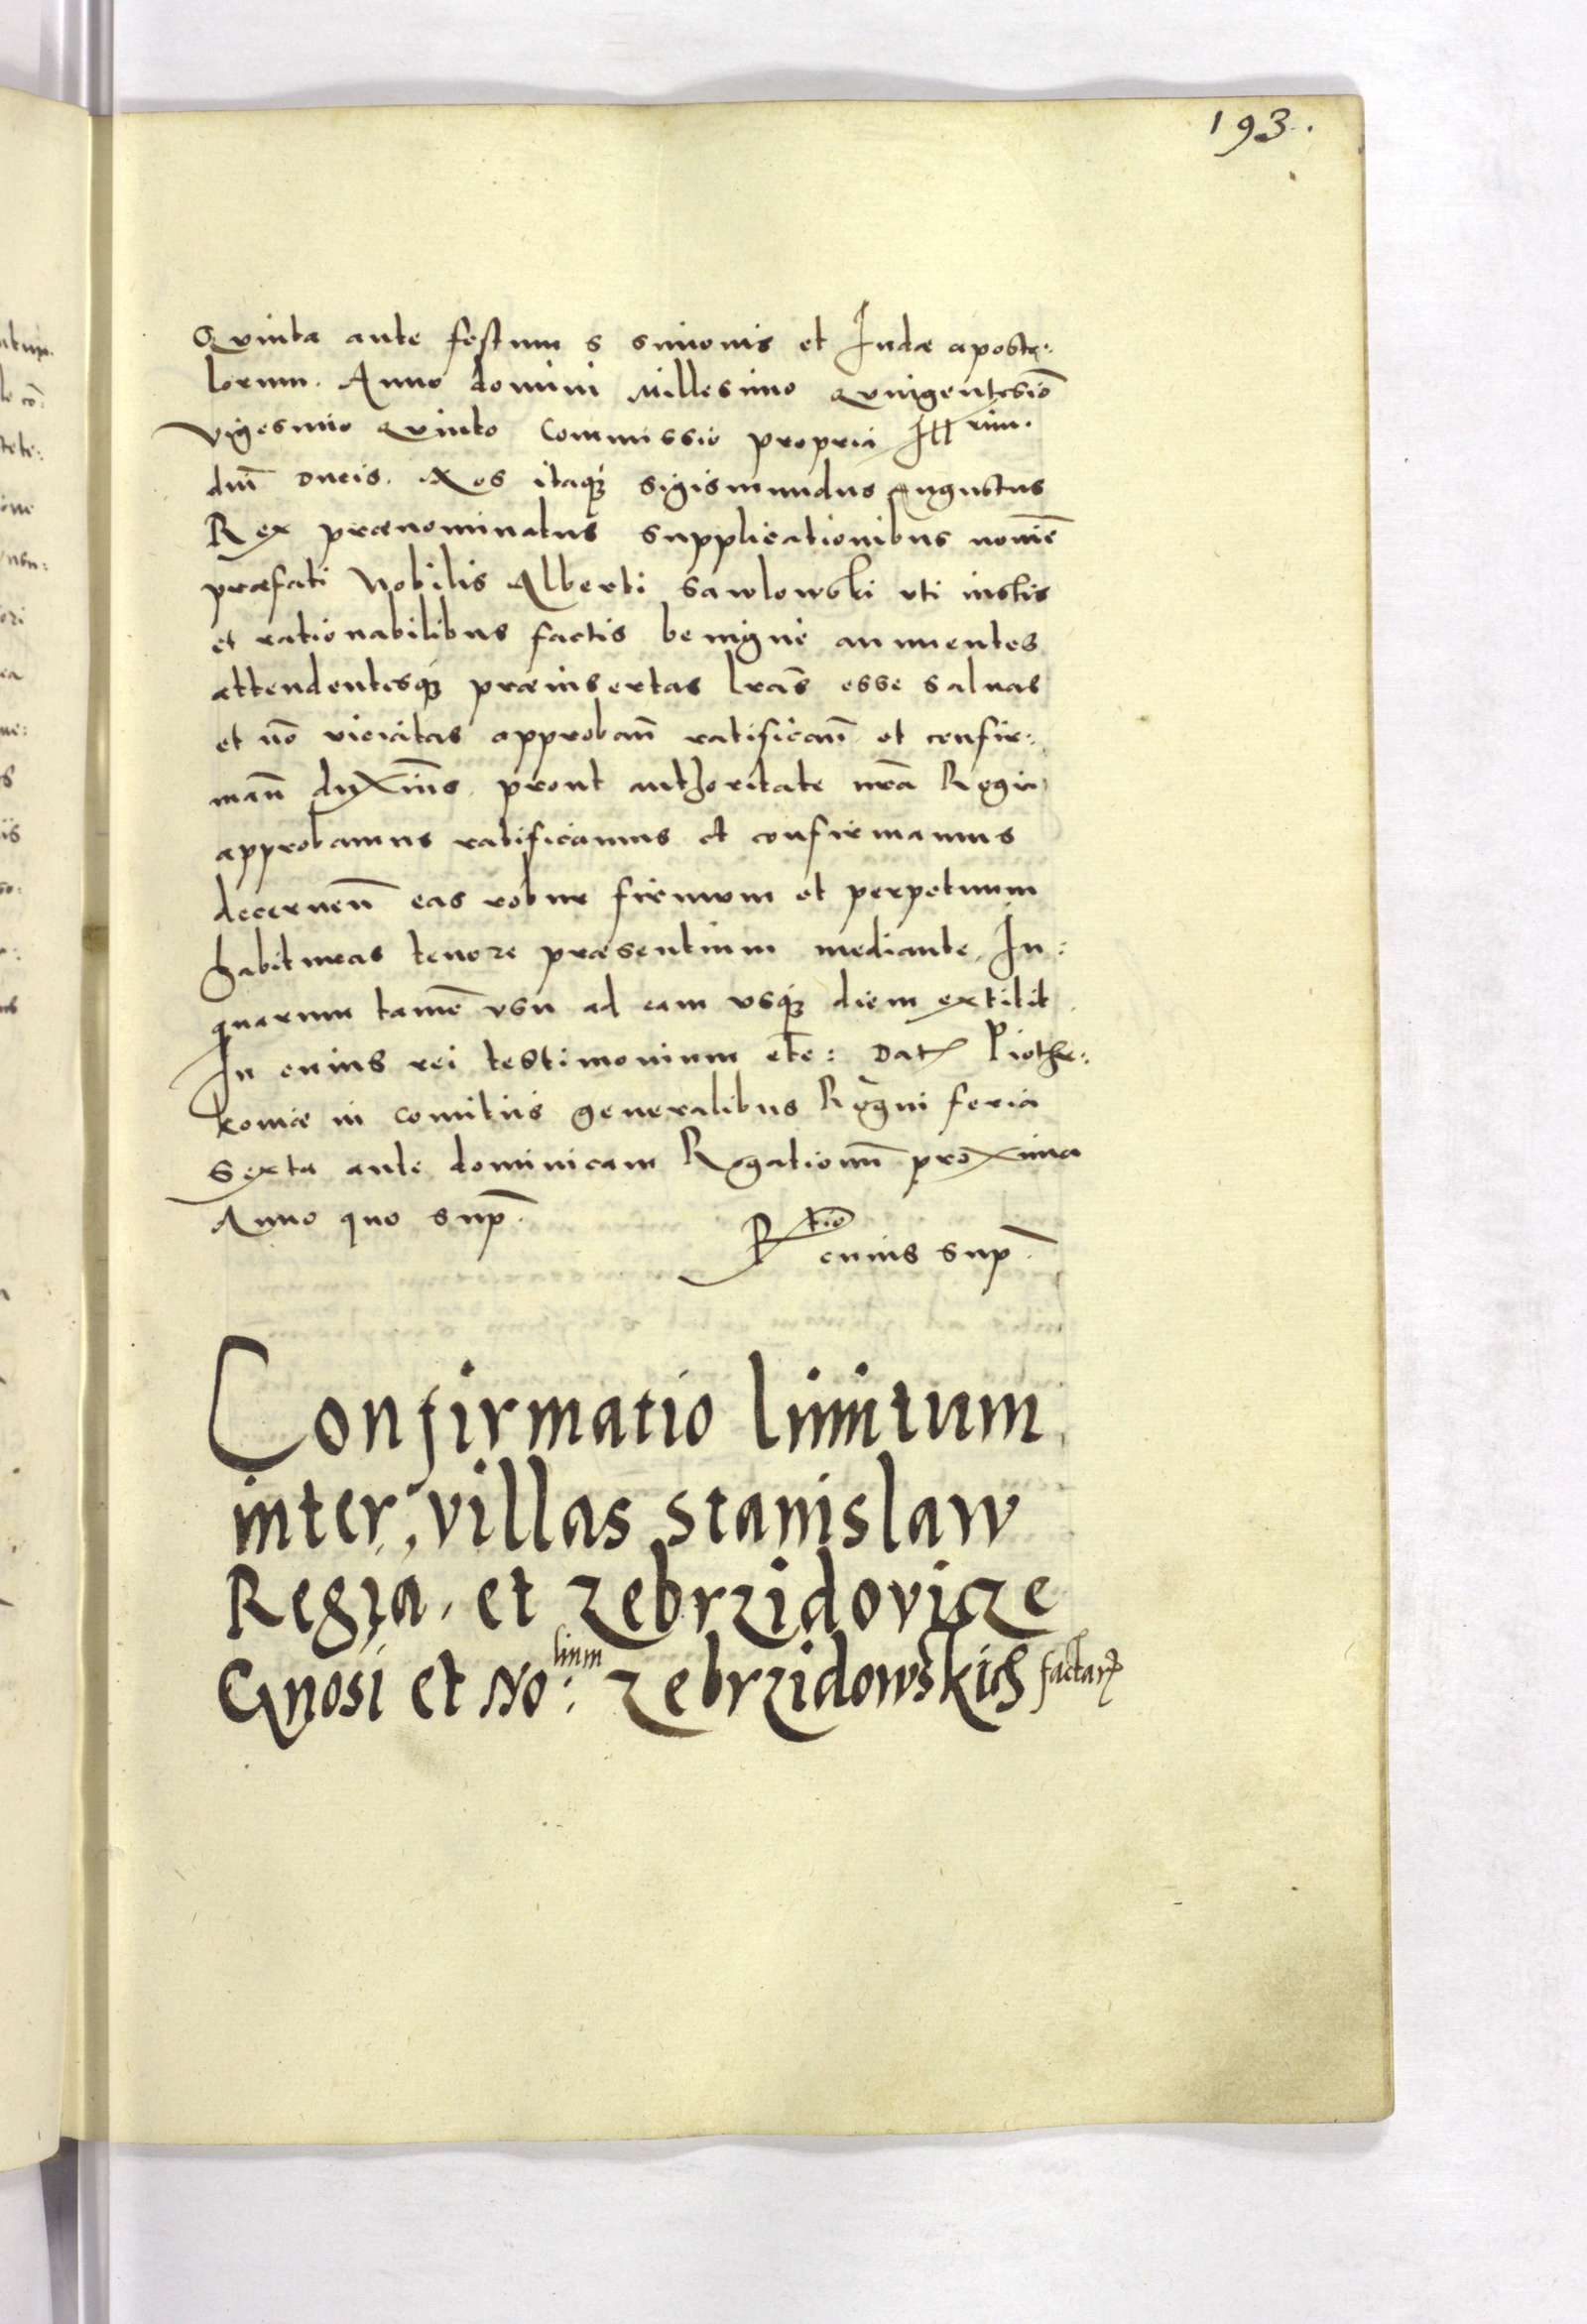 193.
Quinta ante festum s simonis et Iudae aposto:
lorum. Anno domini Millesimo Quingentesiõ
vigesimo Quinto Commissio propria Ill rim.
dnĩ Ducis. Nos itaqȝ Sigismundus Augustus
Rex praenominatus supplicationibus nomiẽ
praefati Nobilis Alberti Sawlowski uti iustis
et rationabilibus factis benigne annuentes
attendentesqȝ praeinsertas lrãs esse saluas
et nõ viciatas approbañ ratificañ et confir:
mañ duximũs prout authoritate nrã Regia
approbamus ratificamus et confirmamus
decerneñ eas robur firmum et perpetuum
habituras tenore praesentium mediante, In:
quarum tamẽ usu ad eam usqȝ diem extitit
In cuius rei testimonium etc: Dat Piothr:
kowiae in comitiis generalibus Regni feria
sexta ante dominicam Rogationũ proxima
Anno quo sup̃.
R tio cuius sup̃.
Confirmatio limitum
inter villas stanislaw
Regia, et zebrzidovicze
Gnosi et No:lium zebrzidowskich factar